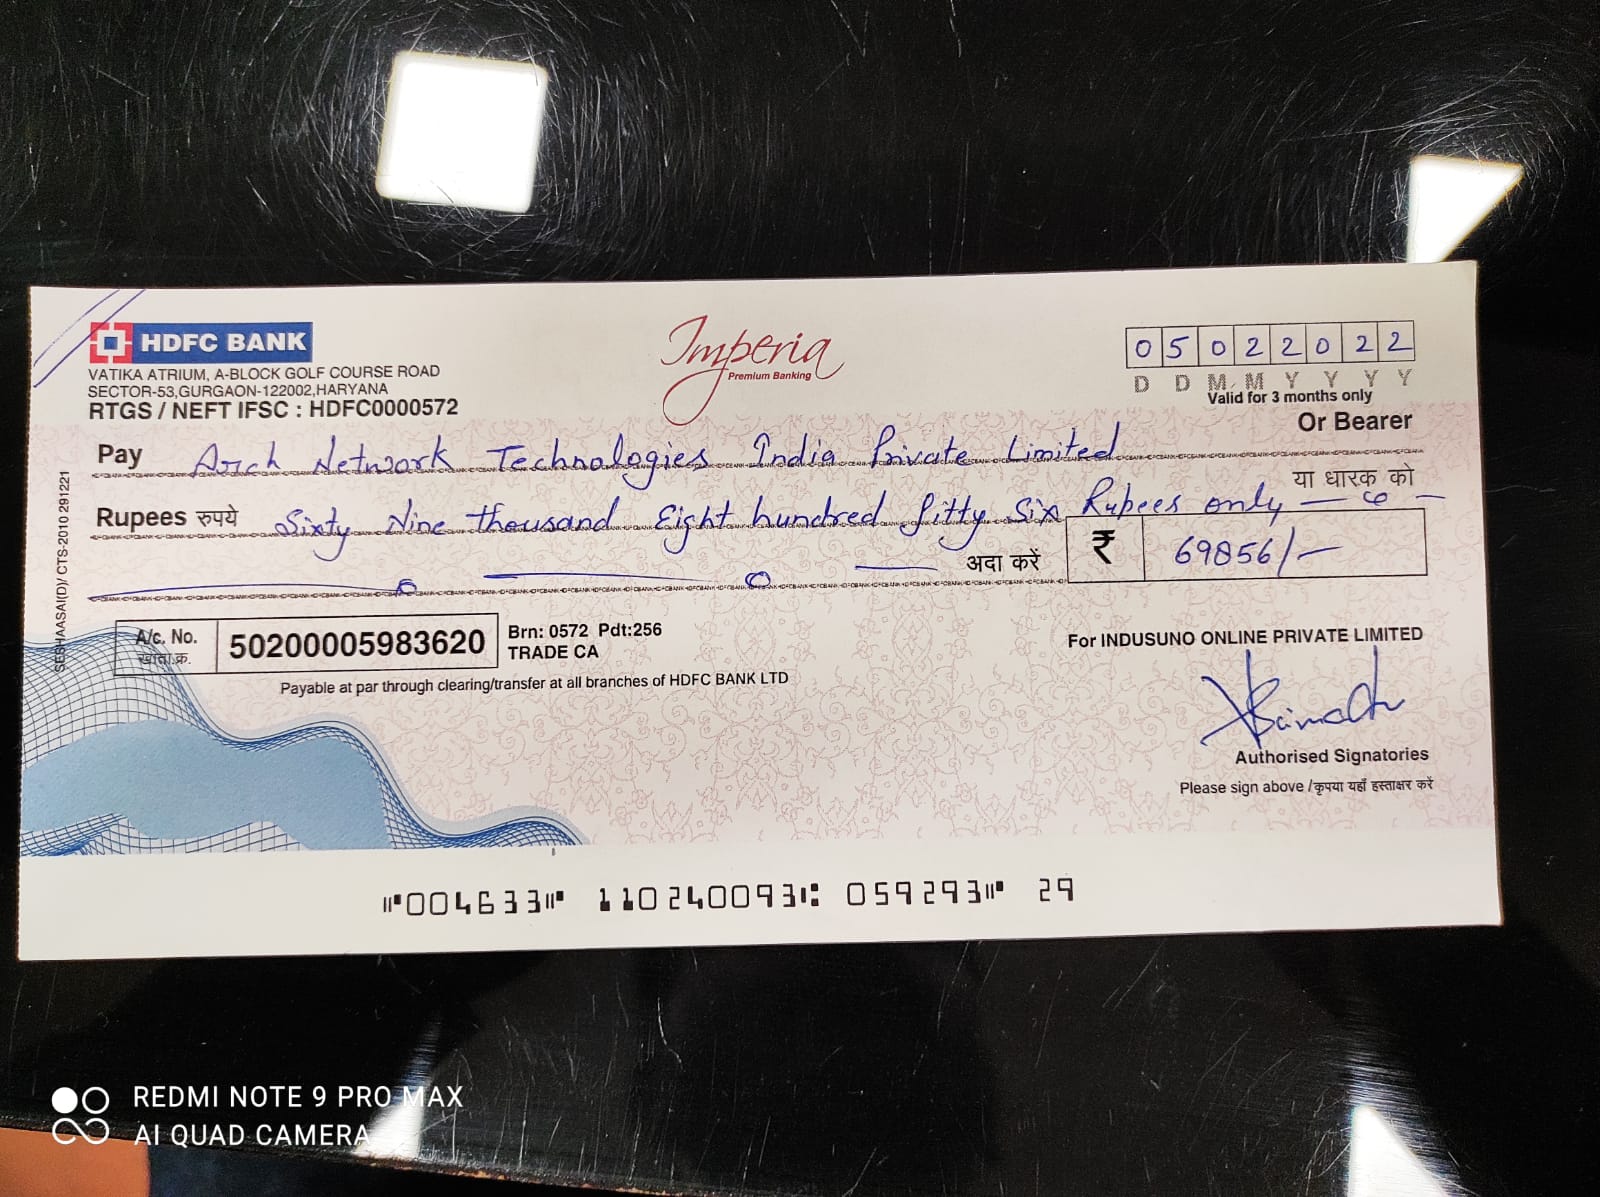 HDFC BANK
VATIKA ATRIUM, A-BLOCK GOLF COURSE ROAD
SECTOR-53,GURGAON-122002,HARYANA
RTGS / NEFT IFSC : HDFC0000572
Imperia
Premium Banking
0 5 0 2 2 0 2 2
D D M M Y Y Y Y
Valid for 3 months only
Or Bearer
Pay Arch Network Technologies India Private Limited
या धारक को
Rupees रुपये Sixty Nine thousand Eight hundred fifty Six Rupees only
अदा करें ₹ 69856/-
A/c. No.
खाता क्र.
50200005983620
Brn: 0572 Pdt:256
TRADE CA
Payable at par through clearing/transfer at all branches of HDFC BANK LTD
For INDUSUNO ONLINE PRIVATE LIMITED
Authorised Signatories
Please sign above /कृपया यहाँ हस्ताक्षर करें
SESHAASAI(D)/ CTS-2010 291221
⑈004633⑈ 110240093⑆ 059293⑈ 29
REDMI NOTE 9 PRO MAX
AI QUAD CAMERA